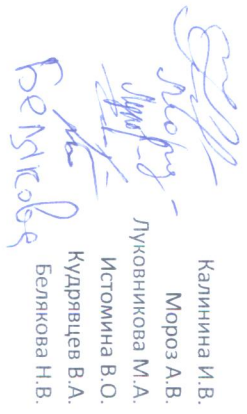 Калинина И.В.
Мороз Мороз А.В.
Луковникова М.А.
Истомина В.О.
Кудрявцев В.А.
Белякова Белякова Н.В.